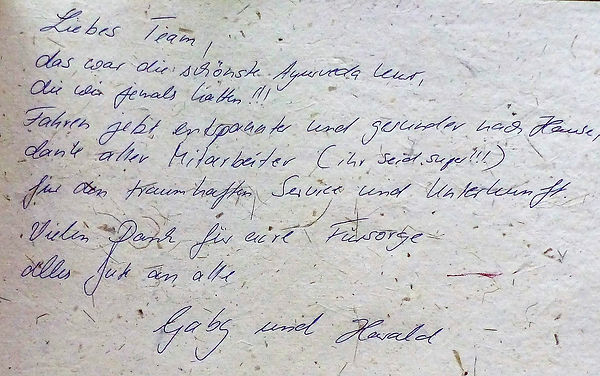 Liebes Team,
das war die schönste Ayurveda Kur,
die wir jemals hatten!!!
Fahren jetzt entspannter und gesünder nach Hause,
dank aller Mitarbeiter (ihr seid super!!!)
für den traumhaften Service und Unterkunft.
Vielen Dank für eure Fürsorge
alles gute an alle
Gaby und Harald